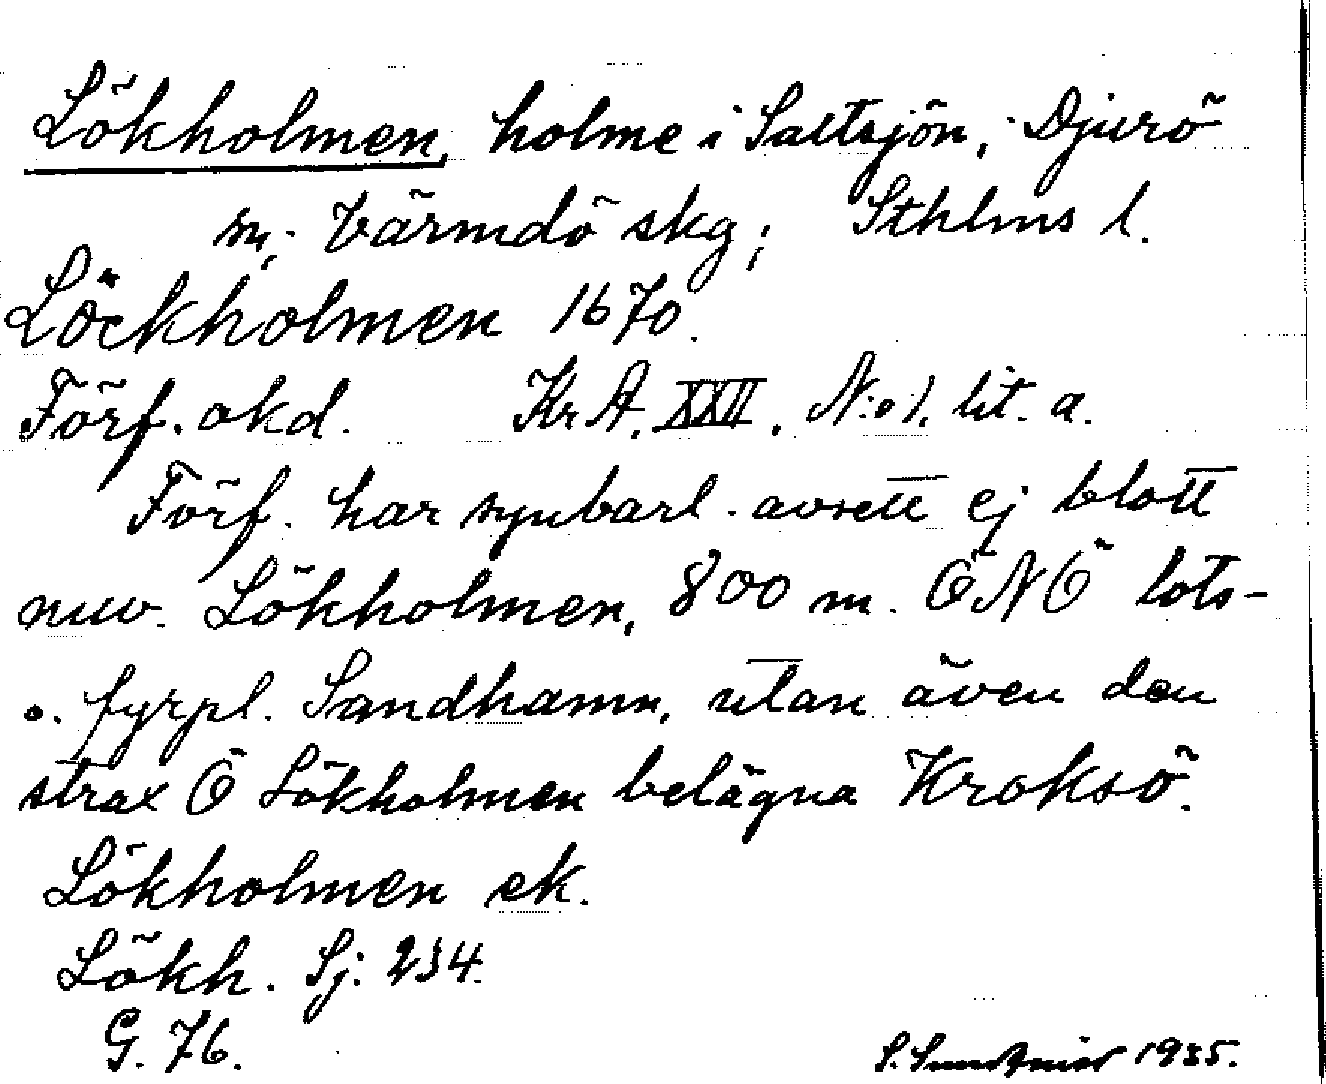 Lökholmen, holme i Saltsjön, Djurö
sn, Värmdö skg; Sthlms l.
Löckholmen 1670.
Förf. okd. Kr A. XXII. N:o 1. lit. a.
Förf. har synbarl. avsett ej blott
nuv. Lökholmen, 800 m. ÖNÖ lots-
o. fyrpl. Sandhamn, utan även den
strax Ö Lökholmen belägna Kroksö.
Lökholmen ek.
Lökh. Sj. 234.
G. 76.
1935.